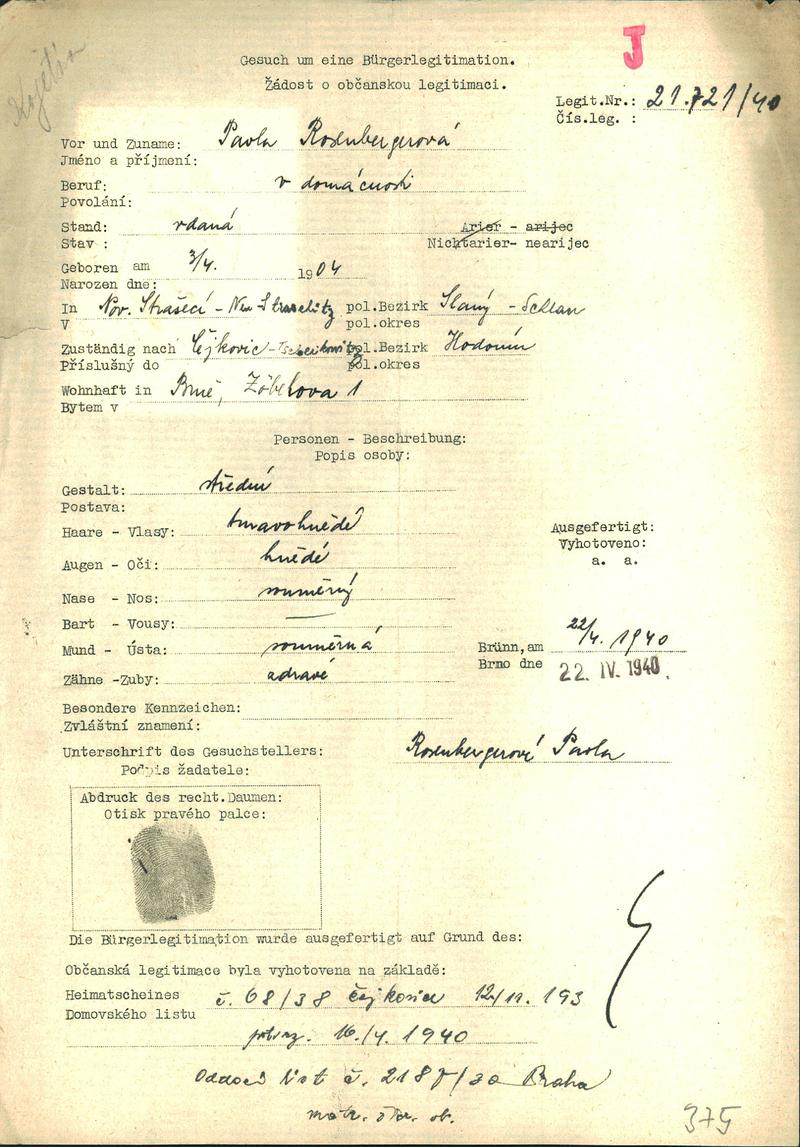 J
Gesuch um eine Bürgerlegitimation.
Žádost o občanskou legitimaci.
Legit.Nr.: 21.721/40
Čís.leg. :
Vor und Zuname: Pavla Rosenbergerová
Jméno a příjmení:
Beruf: v domácnosti
Povolání:
Stand: vdaná
Stav :
Arier - arijec
Nichtarier- nearijec
Geboren am 3/4. 1904
Narozen dne:
In Nov. Strašecí - Neu-Straschitz pol.Bezirk Slaný - Schlan
V pol.okres
Zuständig nach Čejkovic - Tscheikowitz pol.Bezirk Hodonín
Příslušný do pol.okres
Wohnhaft in Brně, Zöbelova 1
Bytem v
Personen - Beschreibung:
Popis osoby:
Gestalt: střední
Postava:
Haare - Vlasy: tmavohnědé
Augen - Oči: hnědé
Nase - Nos: souměrný
Bart - Vousy: —
Mund - Ústa: souměrná
Zähne -Zuby: zdravé
Ausgefertigt:
Vyhotoveno:
a. a.
Brünn,am 22/4. 1940
Brno dne 22. IV. 1940.
Besondere Kennzeichen:
Zvláštní znamení:
Unterschrift des Gesuchstellers: Rosenbergerová Pavla
Podpis žadatele:
Abdruck des recht.Daumen:
Otisk pravého palce:
Die Bürgerlegitimation wurde ausgefertigt auf Grund des:
Občanská legitimace byla vyhotovena na základě:
Heimatscheines č. 68/38 Čejkovice 12/11. 193
Domovského listu
potvrz. 16./4. 1940
Oddací list č. 2187/30 Praha
matr. ob.
375